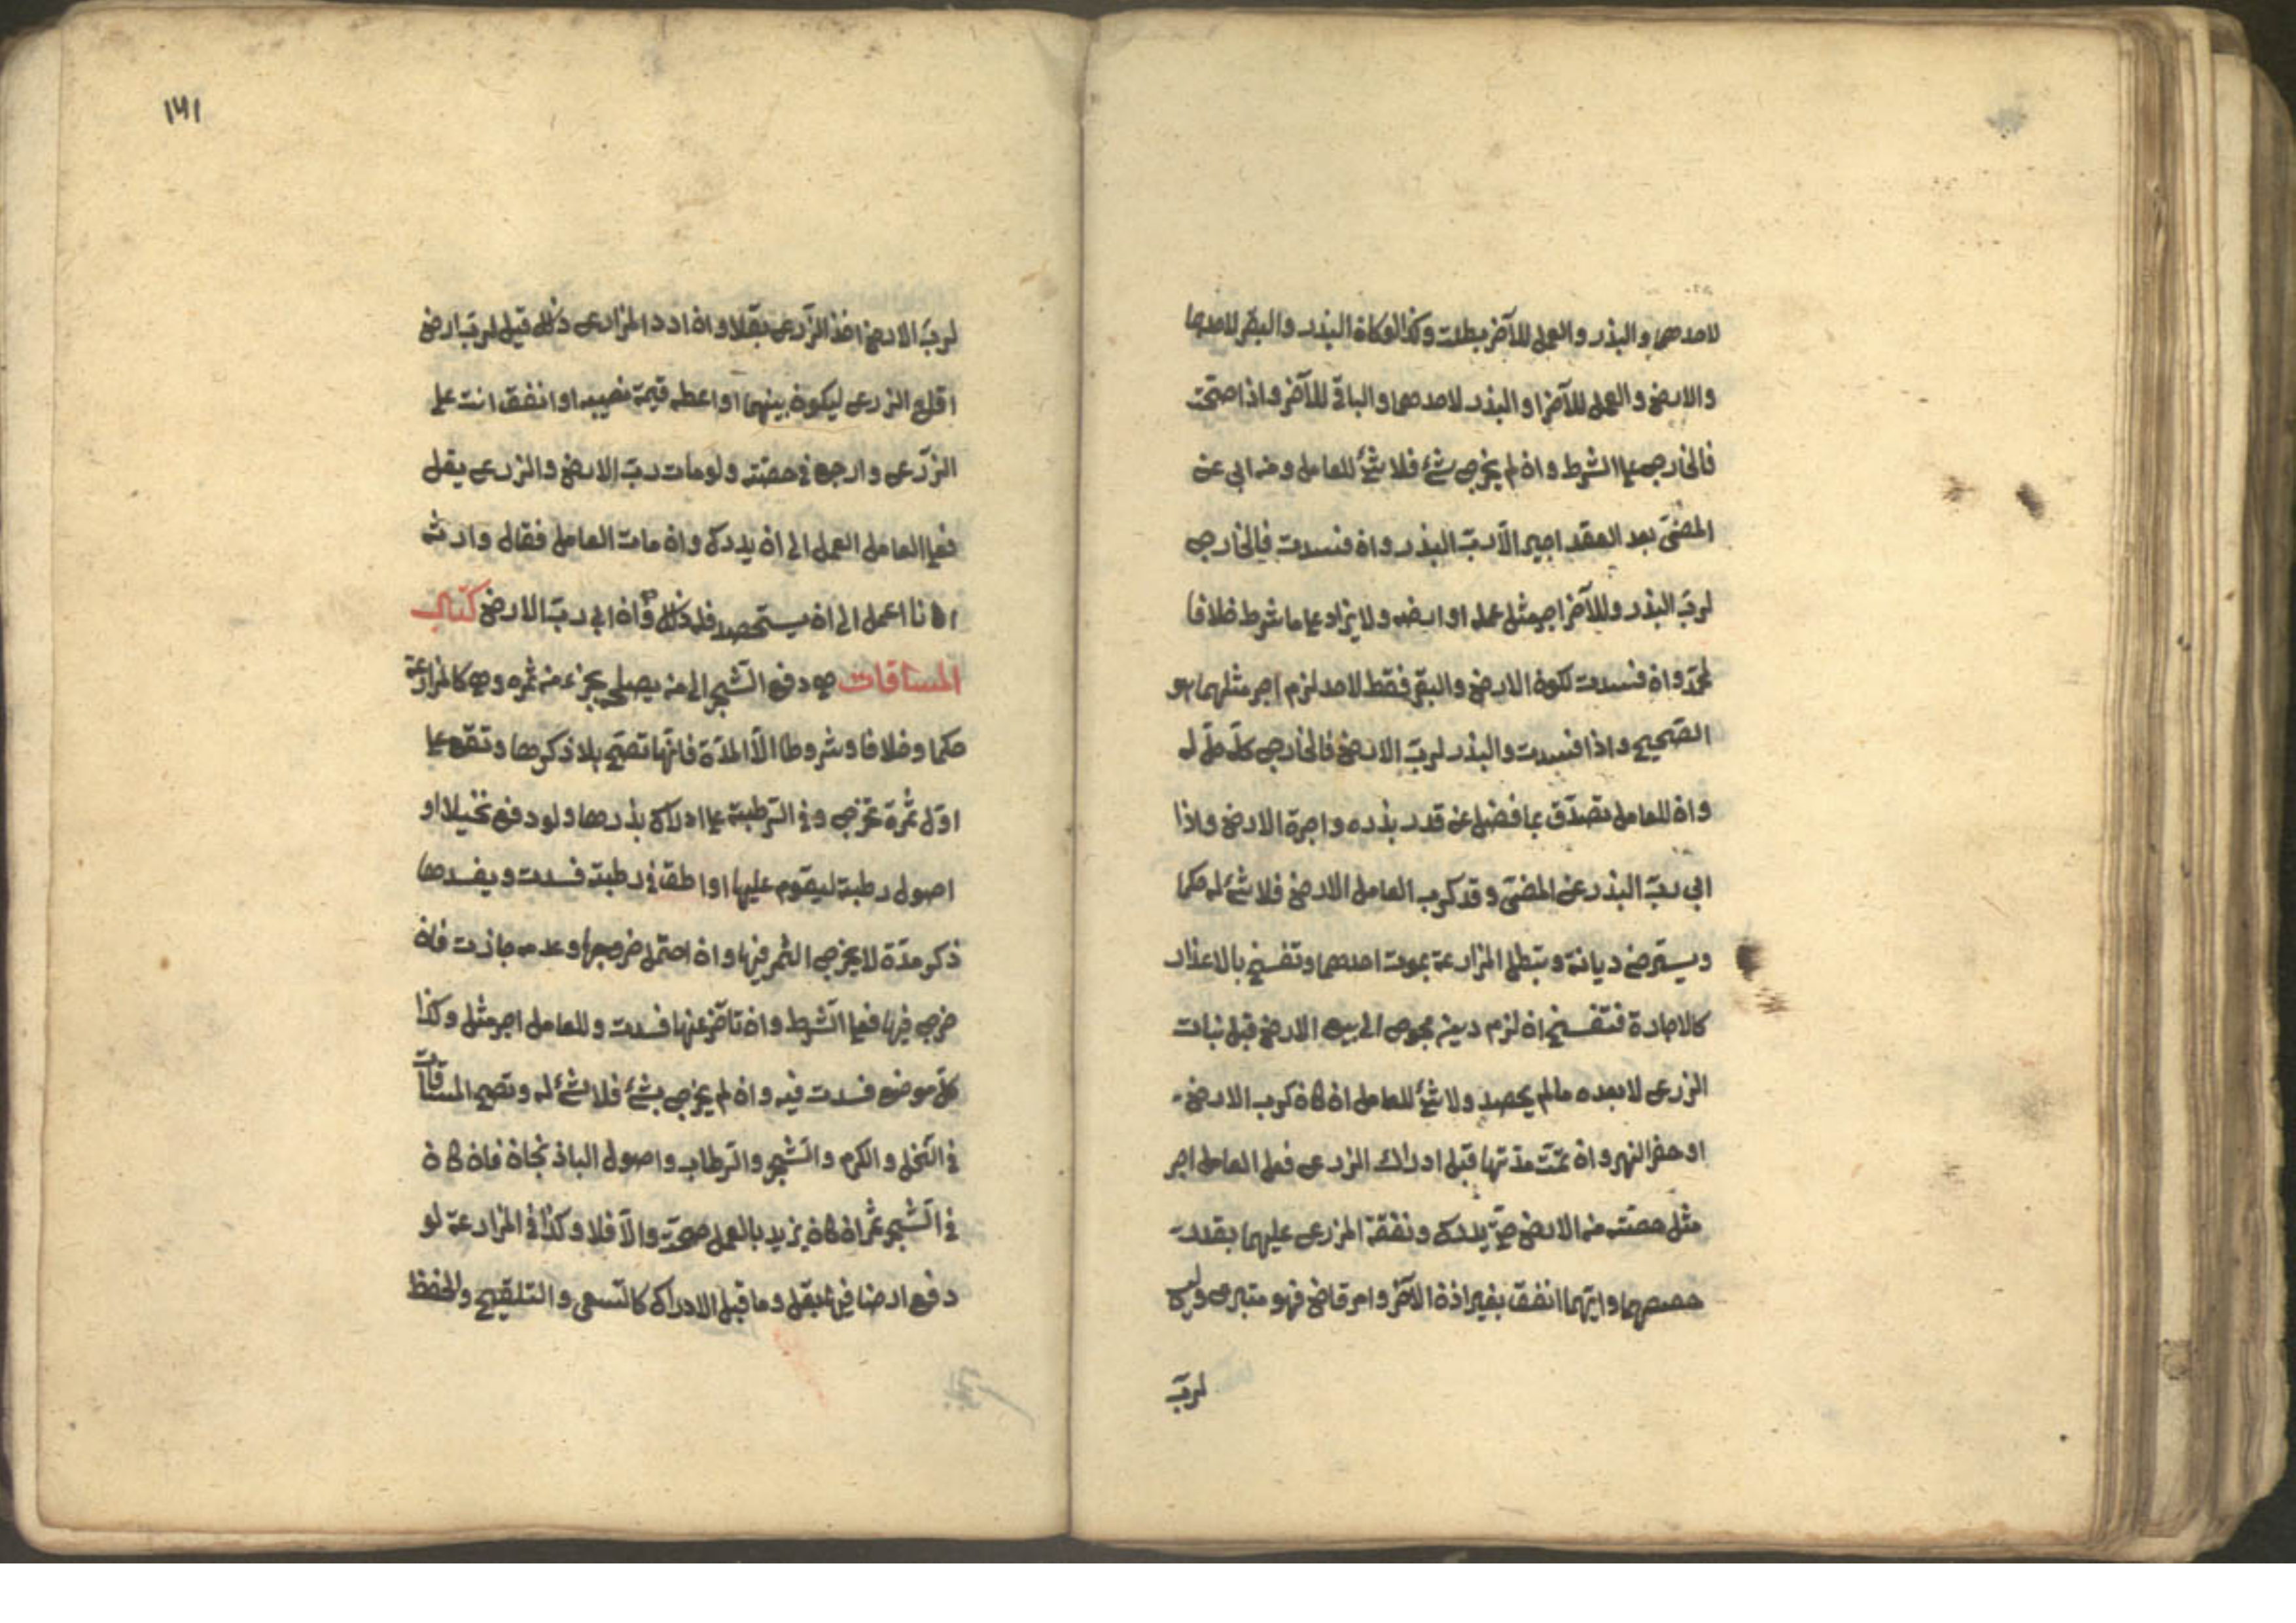 لاحدهما والبذر والعمل للآخر بطلت وكذا لو كان البذر والبقر لاحدهما
والارض والعمل للآخر او البذر لاحدهما والباقى للآخر واذا صحّت
فالخارج على الشرط وان لم يخرج شئ فلا شئ للعامل ومن ابى عن
المضىّ بعد العقد اجبر الّا ربّ البذر وان فسدت فالخارج
لربّ البذر وللآخر اجر مثل عمله او ارضه ولا يزاد على ما شرط خلافا
لمحمّد وان فسدت لكون الارض والبقر فقط لاحد لزم اجر مثلهما هو
الصّحيح واذا فسدت والبذر لربّ الارض فالخارج كلّه حلّ له
وان للعامل تصدّق بما فضل عن قدر بذره واجرة الارض واذا
ابى ربّ البذر عن المضىّ وقد كرب العامل الارض فلا شئ له حكما
ويسترضى ديانة وتبطل المزارعة بموت احدهما وتفسخ بالاعذار
كالاجارة فتفسخ ان لزم دين محوج الى بيع الارض قبل نبات
الزرع لا بعده ما لم يحصد ولا شئ للعامل ان كان كرب الارض
او حفر النهر وان تمّت مدّتها قبل ادراك الزرع فعلى العامل اجر
مثل حصّته من الارض حتّى يدرك ونفقة الزرع عليهما بقدر
حصصهما وايّهما انفق بغير اذن الآخر وامر قاض فهو متبرع وليس
لربّ
١٤١
لربّ الارض اخذ الزّرع بقلا وان اراد المزارع ذلك قيل لربّ ارض
اقلع الزرع ليكون بينهما او اعطه قيمة نصيبه او انفق انت على
الزّرع وارجع فى حصّته ولو مات ربّ الارض والزرع بقل
فعلى العامل العمل الى ان يدرك وان مات العامل فقال وارثه
انا اعمل الى ان يستحصد فله ذلك وان ابى ربّ الارض كتاب
المساقات هى دفع الشّجر الى من يصلحه بجزء من ثمره وهى كالمزارعة
حكما وخلافا وشروطا الّا المدّة فانّها تصحّ بلا ذكرها وتقع على
اوّل ثمرة تخرج وفى الرّطبة على ادراك بذرها ولو دفع نخيلا او
اصول رطبة ليقوم عليها او اطلق فى رطبة فسدت ويفسدها
ذكر مدّة لا يخرج الثمر فيها وان احتمل خروجها وعدمه جازت فان
خرج فيها فعلى الشّرط وان تاخّر عنها فسدت وللعامل اجر مثله وكذا
كلّ موضع فسدت فيه وان لم يخرج شئ فلا شئ له وتصح المساقات
فى النّخل والكرم والشّجر والرّطاب واصول الباذنجان فان كان
فى الشّجر ثمر ان كان يزيد بالعمل صحّت والّا فلا وكذا فى المزارعة لو
دفع ارضا فيها بقل وما قبل الادراك كالسّقى والتلقيح والحفظ